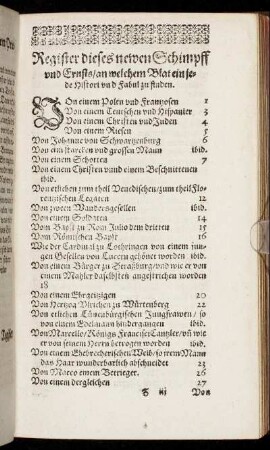 Register dieses newen Schimpff
vnd Ernsts / an welchem Blat ein je-
de Histori vnd Fabul zu finden.
VOn einem Polen vnd Frantzosen 1
Von einem Teutschen vnd Hispanier 3
Von einem Christen vnd Juden 4
Von einem Riesen 5
Von Johanne von Schwartzenburg 6
Von ein starcken vnd grossen Mann ibid.
Von einem Schotten 7
Von einem Christen vnnd einem Beschnittenen
ibid.
Von etlichen zum theil Venedischen / zum theil Flo-
rentzischen Legaten 12
Von zween Wandersgesellen ibid.
Von einem Soldaten 14
Vom Bapst zu Rom Julio dem dritten 15
Vom Römischen Bapst 16
Wie der Cardinal zu Lothringen von einem jun-
gen Gesellen von Lucern gehönet worden ibid.
Von einem Bürger zu Straßburg / vnd wie er von
einem Mahler daselbsten angestrichen worden
18
Von einem Ehrgeitzigen 20
Von Hertzog Vlrichen zu Würtenberg 22
Von etlichen Lünenburgischen Jungfrawen / so
von einem Edelmann hindergangen ibid.
Von Marcello / Königs Francisci Cantzler / vñ wie
er von seinem Herrn betrogen worden ibid.
Von einem Ehebrecherischen Weib / so jrem Mann
das Haar wunderbarlich abschneidet 23
Von Marco einem Betrieger. 26
Von einem dergleichen 27
iij Von